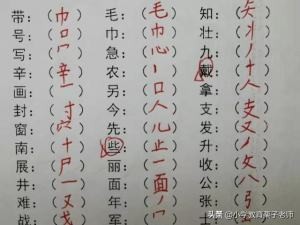 带:(巾) 毛:(毛) 知:(矢)
号:(口) 巾:(巾) 壮:(丬)
写:(冖) 急:(心) 九:(丿)
辛:(辛) 农:(丶) 戴:(十)
画:(一) 另:(口) 拿:(人)
封:(寸) 今:(人) 支:(支)
窗:(穴) 先:(儿) 发:(又)
南:(十) 些:(止) 升:(丿)
展:(尸) 丽:(一) 收:(攵)
井:(一) 面:(面) 公:(八)
难:(又) 年:(丿) 张:(弓)
战:(戈) 军:(冖) 士:
头条 @小今教育栗子老师